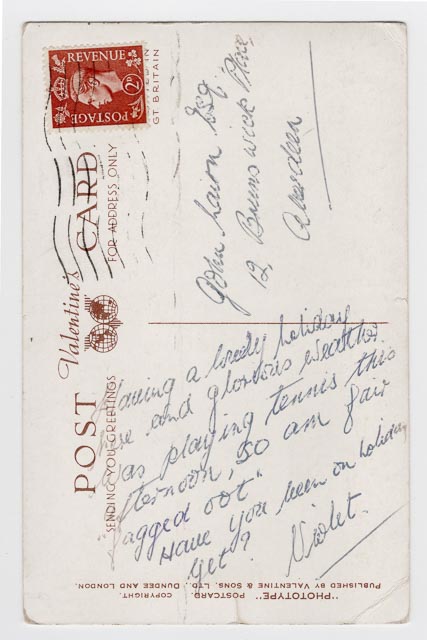 Valentine's
POST CARD
SENDING YOU GREETINGS
FOR ADDRESS ONLY
GT. BRITAIN
POSTAGE
REVENUE
2D
Having a lovely holiday
here and glorious weather.
Was playing tennis this
afternoon, so am fair
"fagged oot"
Have you been on holiday
yet?
Violet.
John Esq
12, Brunswick Place
Aberdeen
"PHOTOTYPE" POSTCARD. COPYRIGHT.
PUBLISHED BY VALENTINE & SONS, LTD., DUNDEE AND LONDON.